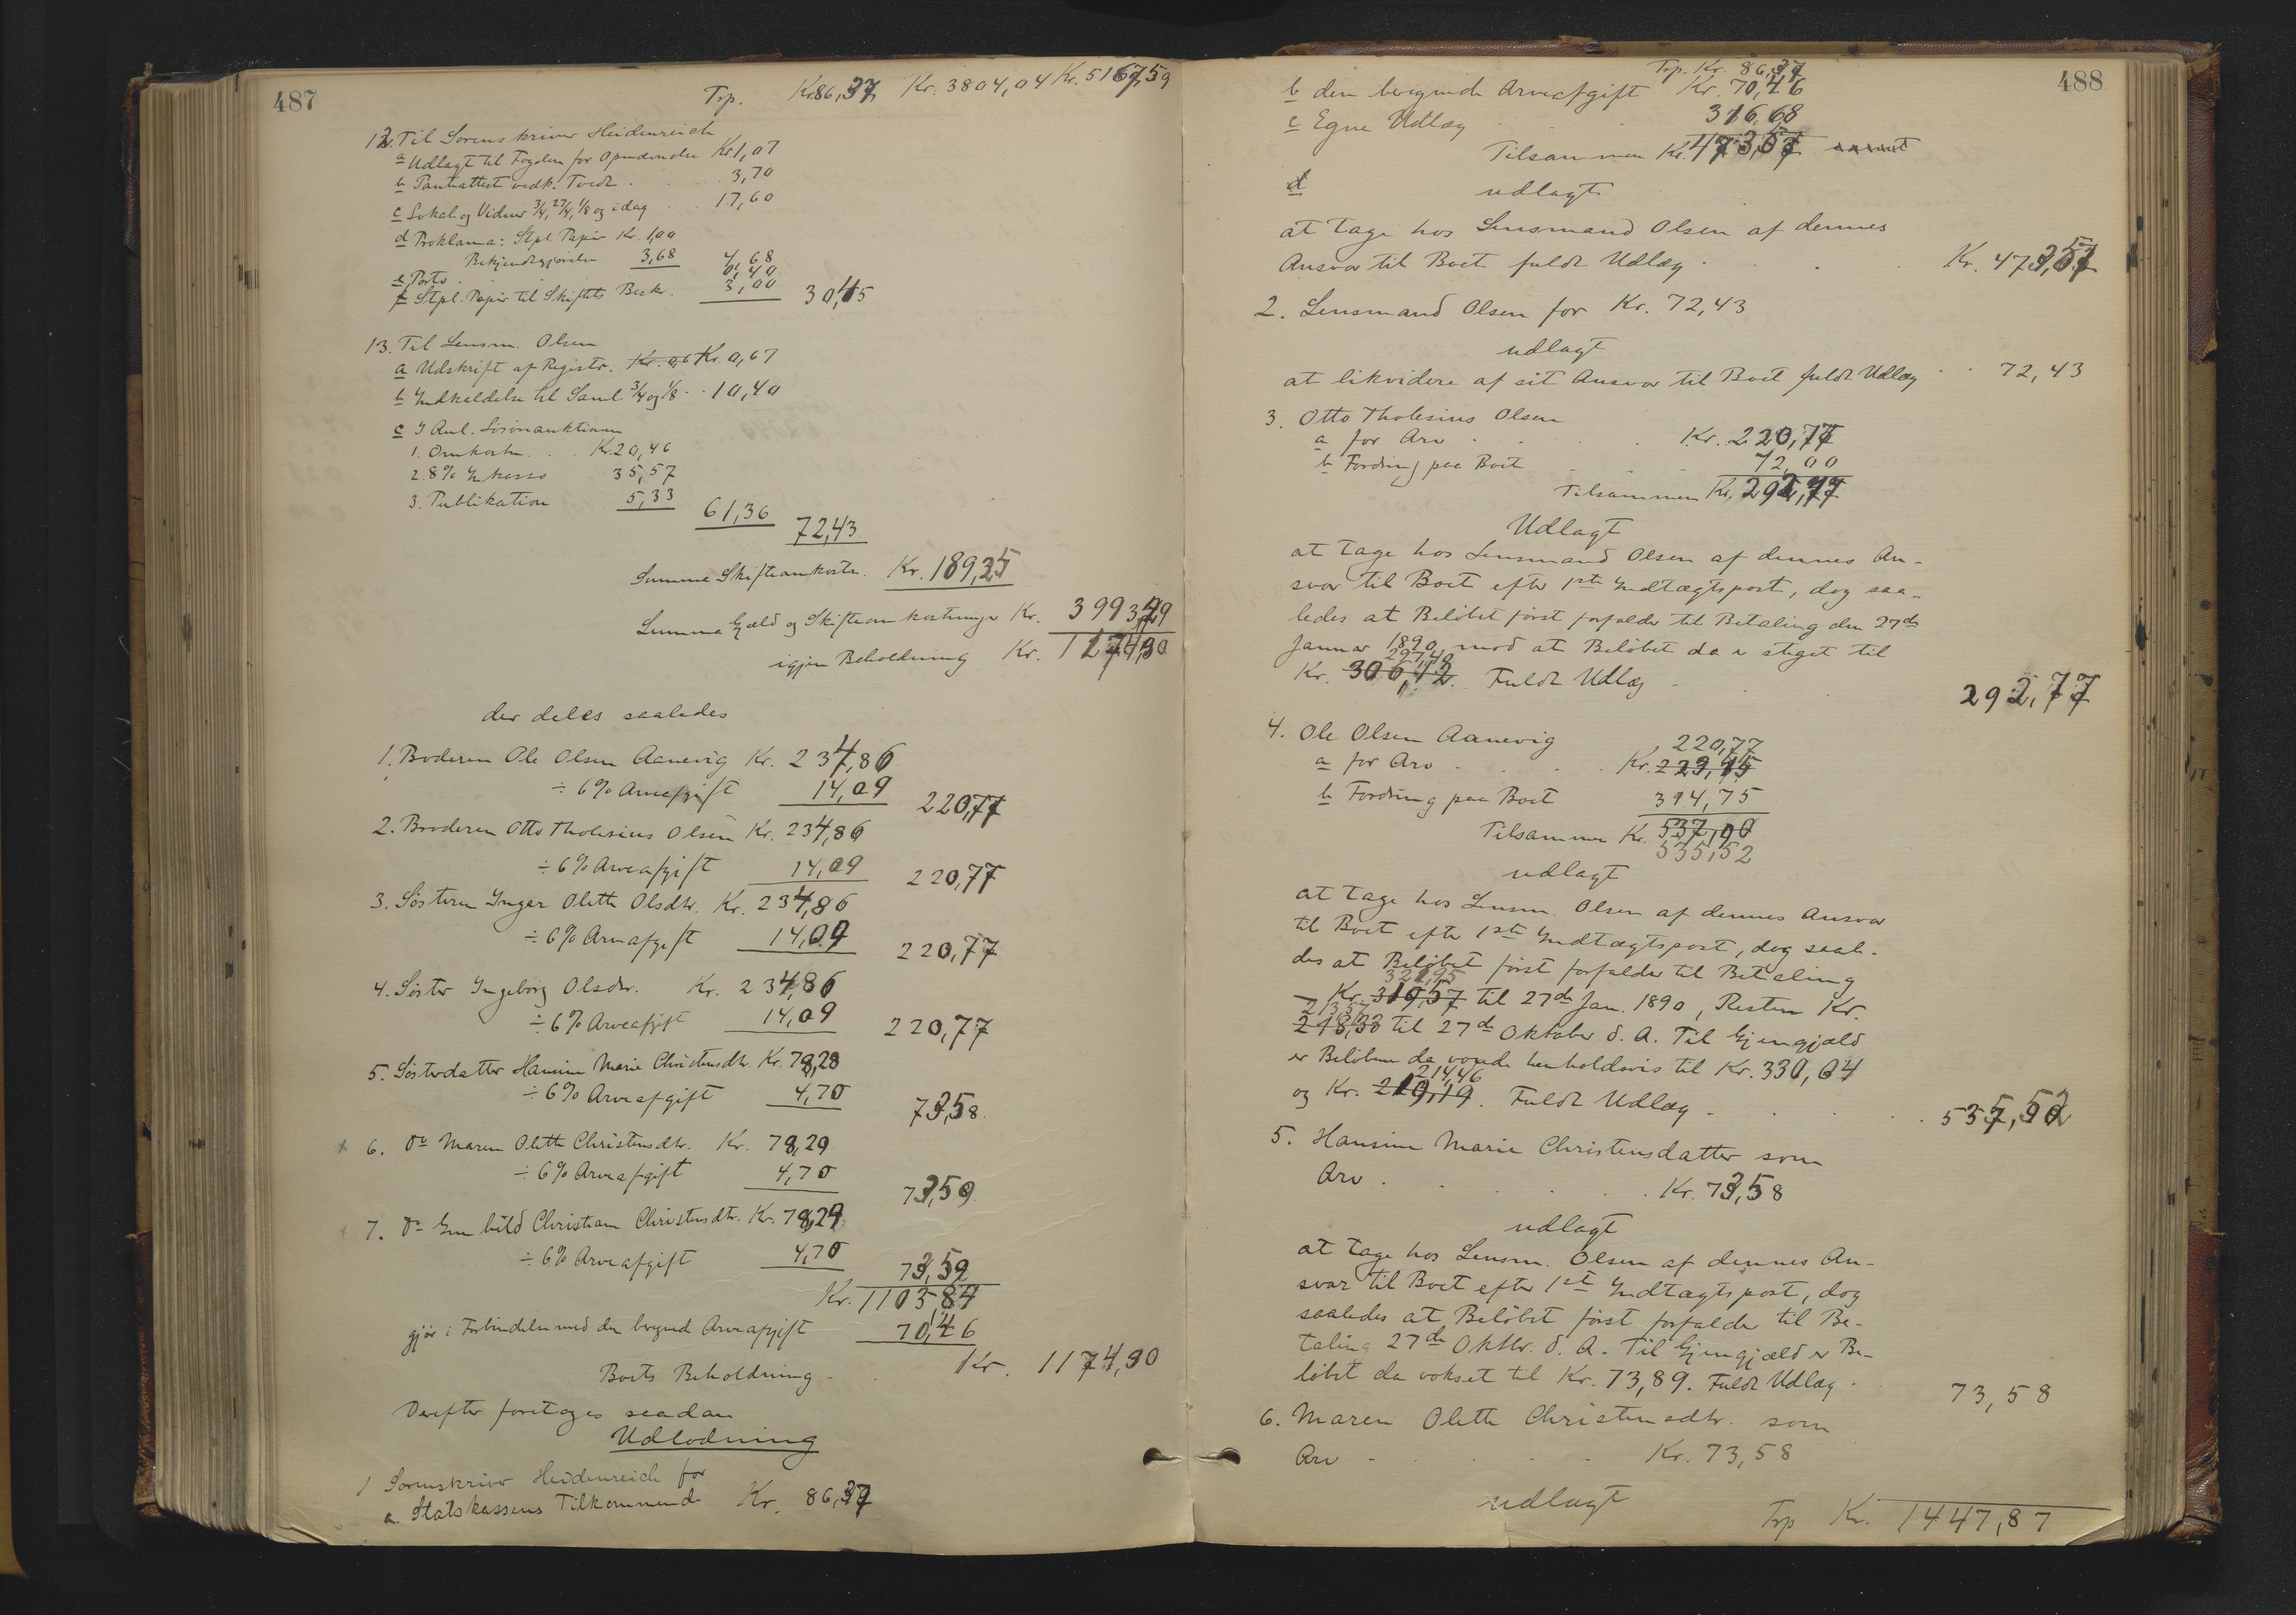 487
Trp. Kr 86,37 Kr. 3804,04 Kr. 5167,59
12. Til Sorenskriver Heidenreich
a Udlagt til Fogden for Kr. 1,07
b Pantattest vedk. Tvedt . 3,70
c Lokale og Vidner 3/4, 27/4, 1/8 og idag 17,60
d Proklama: Stpl. Papir Kr. 1,00
Bekjendtgjørelse 3,68 4,68
e Porto . 0,40
f Stpl. Papir til Skiftets Besk. 3,00 30,45
13. Til Lensm. Olsen
a Udskrift af Registr. Kr. 0,67
b Indkaldelse til Saml. 3/4 og 1/8 . . 10,40
c I Anl. Løsøreauktionen
1. Omkostn. . . Kr. 20,46
2. 8% Inkasso 35,57
3. Publikation 5,33
61,36
72,43
Summa Skifteomkostn. Kr. 189,25
Summa Gjæld og Skifteomkostninger Kr. 3993,29
igjen Beholdning Kr. 1174,30
der deles saaledes
1. Broderen Ole Olsen Aanevig Kr. 234,86
÷ 6% Arveafgift 14,09 220,77
2. Broderen Otto Tholesius Olsen Kr. 234,86
÷ 6% Arveafgift 14,09 220,77
3. Søsteren Inger Olette Olsdtr. Kr. 234,86
÷ 6% Arveafgift 14,09 220,77
4. Søster Ingeborg Olsdtr. Kr. 234,86
÷ 6% Arveafgift 14,09 220,77
5. Søsterdatter Hansine Marie Christensdtr. Kr. 78,28
÷ 6% Arveafgift 4,70 73,58
6. Do Maren Olette Christensdtr. Kr. 78,29
÷ 6% Arveafgift 4,70 73,59
7. Do Christensdtr. Kr. 78,29
÷ 6% Arveafgift 4,70 73,59
Kr. 1103,84
gjør i Forbindelse med den beregnede Arveafgift 70,46
Boets Beholdning . Kr. 1174,30
Derefter foretages saadan
Udlodning
1 Sorenskriver Heidenreich for
a. Statskassens Tilkommende Kr. 86,37
488
Trp. Kr. 86,37
b den beregnede Arveafgift Kr. 70,46
c Egne Udlæg 316,68
Tilsammen Kr. 473,57
d udlagt
at tage hos Lensmand Olsen af dennes
Ansvar til Boet fuldt Udlæg . Kr. 473,57
2. Lensmand Olsen for Kr. 72,43
udlagt
at likvidere af sit Ansvar til Boet fuldt Udlæg . . 72,43
3. Otto Tholesius Olsen
a for Arv . . Kr. 220,77
b Fordring paa Boet 72,00
Tilsammen Kr. 292,77
Udlagt
at tage hos Lensmand Olsen af dennes An-
svar til Boet efter 1ste Indtægtspost, dog saa-
ledes at Beløbet først forfalder til Betaling den 27de
Januar 1890, mod at Beløbet da er steget til
297,40
Kr. 306,12. Fuldt Udlæg 292,77
4. Ole Olsen Aanevig
220,77
a for Arv . . . Kr.
b Fordring paa Boet 314,75
Tilsammen Kr. 537,90
535,52
udlagt
at tage hos Lensm. Olsen af dennes Ansvar
til Boet efter 1ste Indtægtspost, dog saale-
des at Beløbet først forfalder til Betaling
321,95
Kr. 319,57 til 27de Jan. 1890, Resten Kr.
213,57
218,33 til 27de Oktober d. A. Til Gjengjæld
er Beløbene da voxede henholdsvis til Kr. 330,04
214,46
og Kr. 219,19. Fuldt Udlæg . . 535,52
5. Hansine Marie Christensdatter som
Arv . . . Kr. 73,58
udlagt
at tage hos Lensm. Olsen af dennes An-
svar til Boet efter 1ste Indtægtspost, dog
saaledes at Beløbet først forfalder til Be-
taling 27de Oktbr. d. A. Til Gjengjæld er Be-
løbet da vokset til Kr. 73,89. Fuldt Udlæg . 73,58
6. Maren Olette Christensdtr. som
Arv - . . . Kr. 73,58
udlagt
Trp Kr. 1447,87